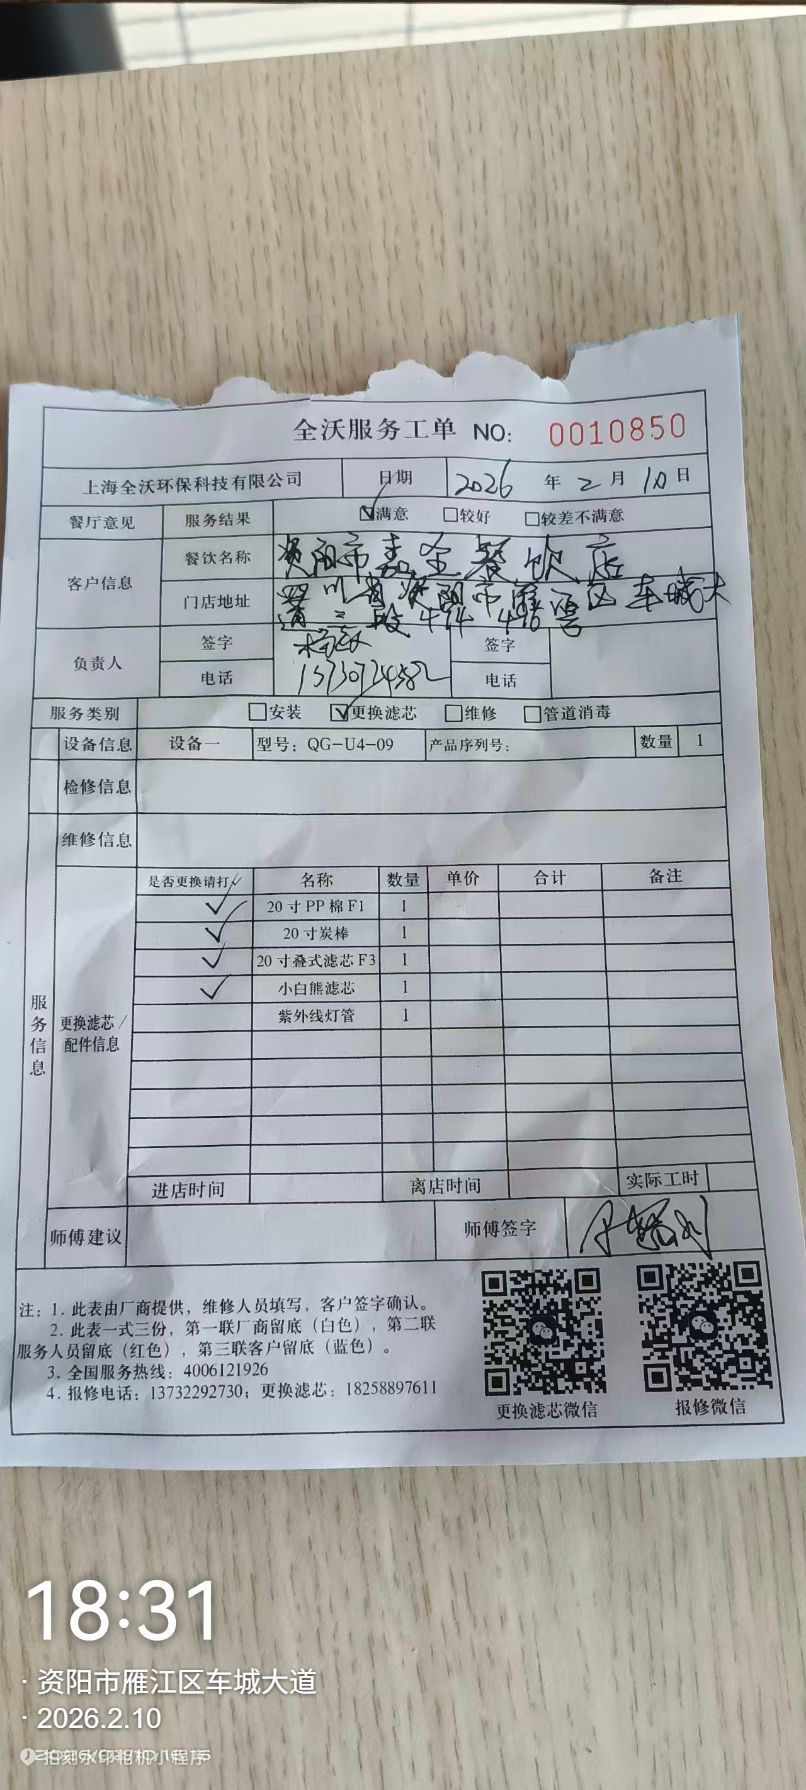 全沃服务工单 NO: 0010850
上海全沃环保科技有限公司 日期 2026 年 2 月 10 日
餐厅意见 服务结果 ☑满意 □较好 □较差不满意
客户信息 餐饮名称 资阳市嘉全餐饮店
门店地址 四川省资阳市雁江区车城大
道三段
负责人 签字 签字
电话 电话
服务类别 □安装 ☑更换滤芯 □维修 □管道消毒
设备信息 设备一 型号: QG-U4-09 产品序列号: 数量 1
检修信息
维修信息
是否更换请打✓ 名称 数量 单价 合计 备注
✓ 20寸PP棉F1 1
✓ 20寸炭棒 1
✓ 20寸叠式滤芯F3 1
✓ 小白熊滤芯 1
紫外线灯管 1
服务信息
更换滤芯/
配件信息
进店时间 离店时间 实际工时
师傅建议 师傅签字
注: 1. 此表由厂商提供, 维修人员填写, 客户签字确认。
2. 此表一式三份, 第一联厂商留底(白色), 第二联
服务人员留底(红色), 第三联客户留底(蓝色)。
3. 全国服务热线: 4006121926
4. 报修电话: 13732292730; 更换滤芯: 18258897611
更换滤芯微信 报修微信
18:31
· 资阳市雁江区车城大道
· 2026.2.10